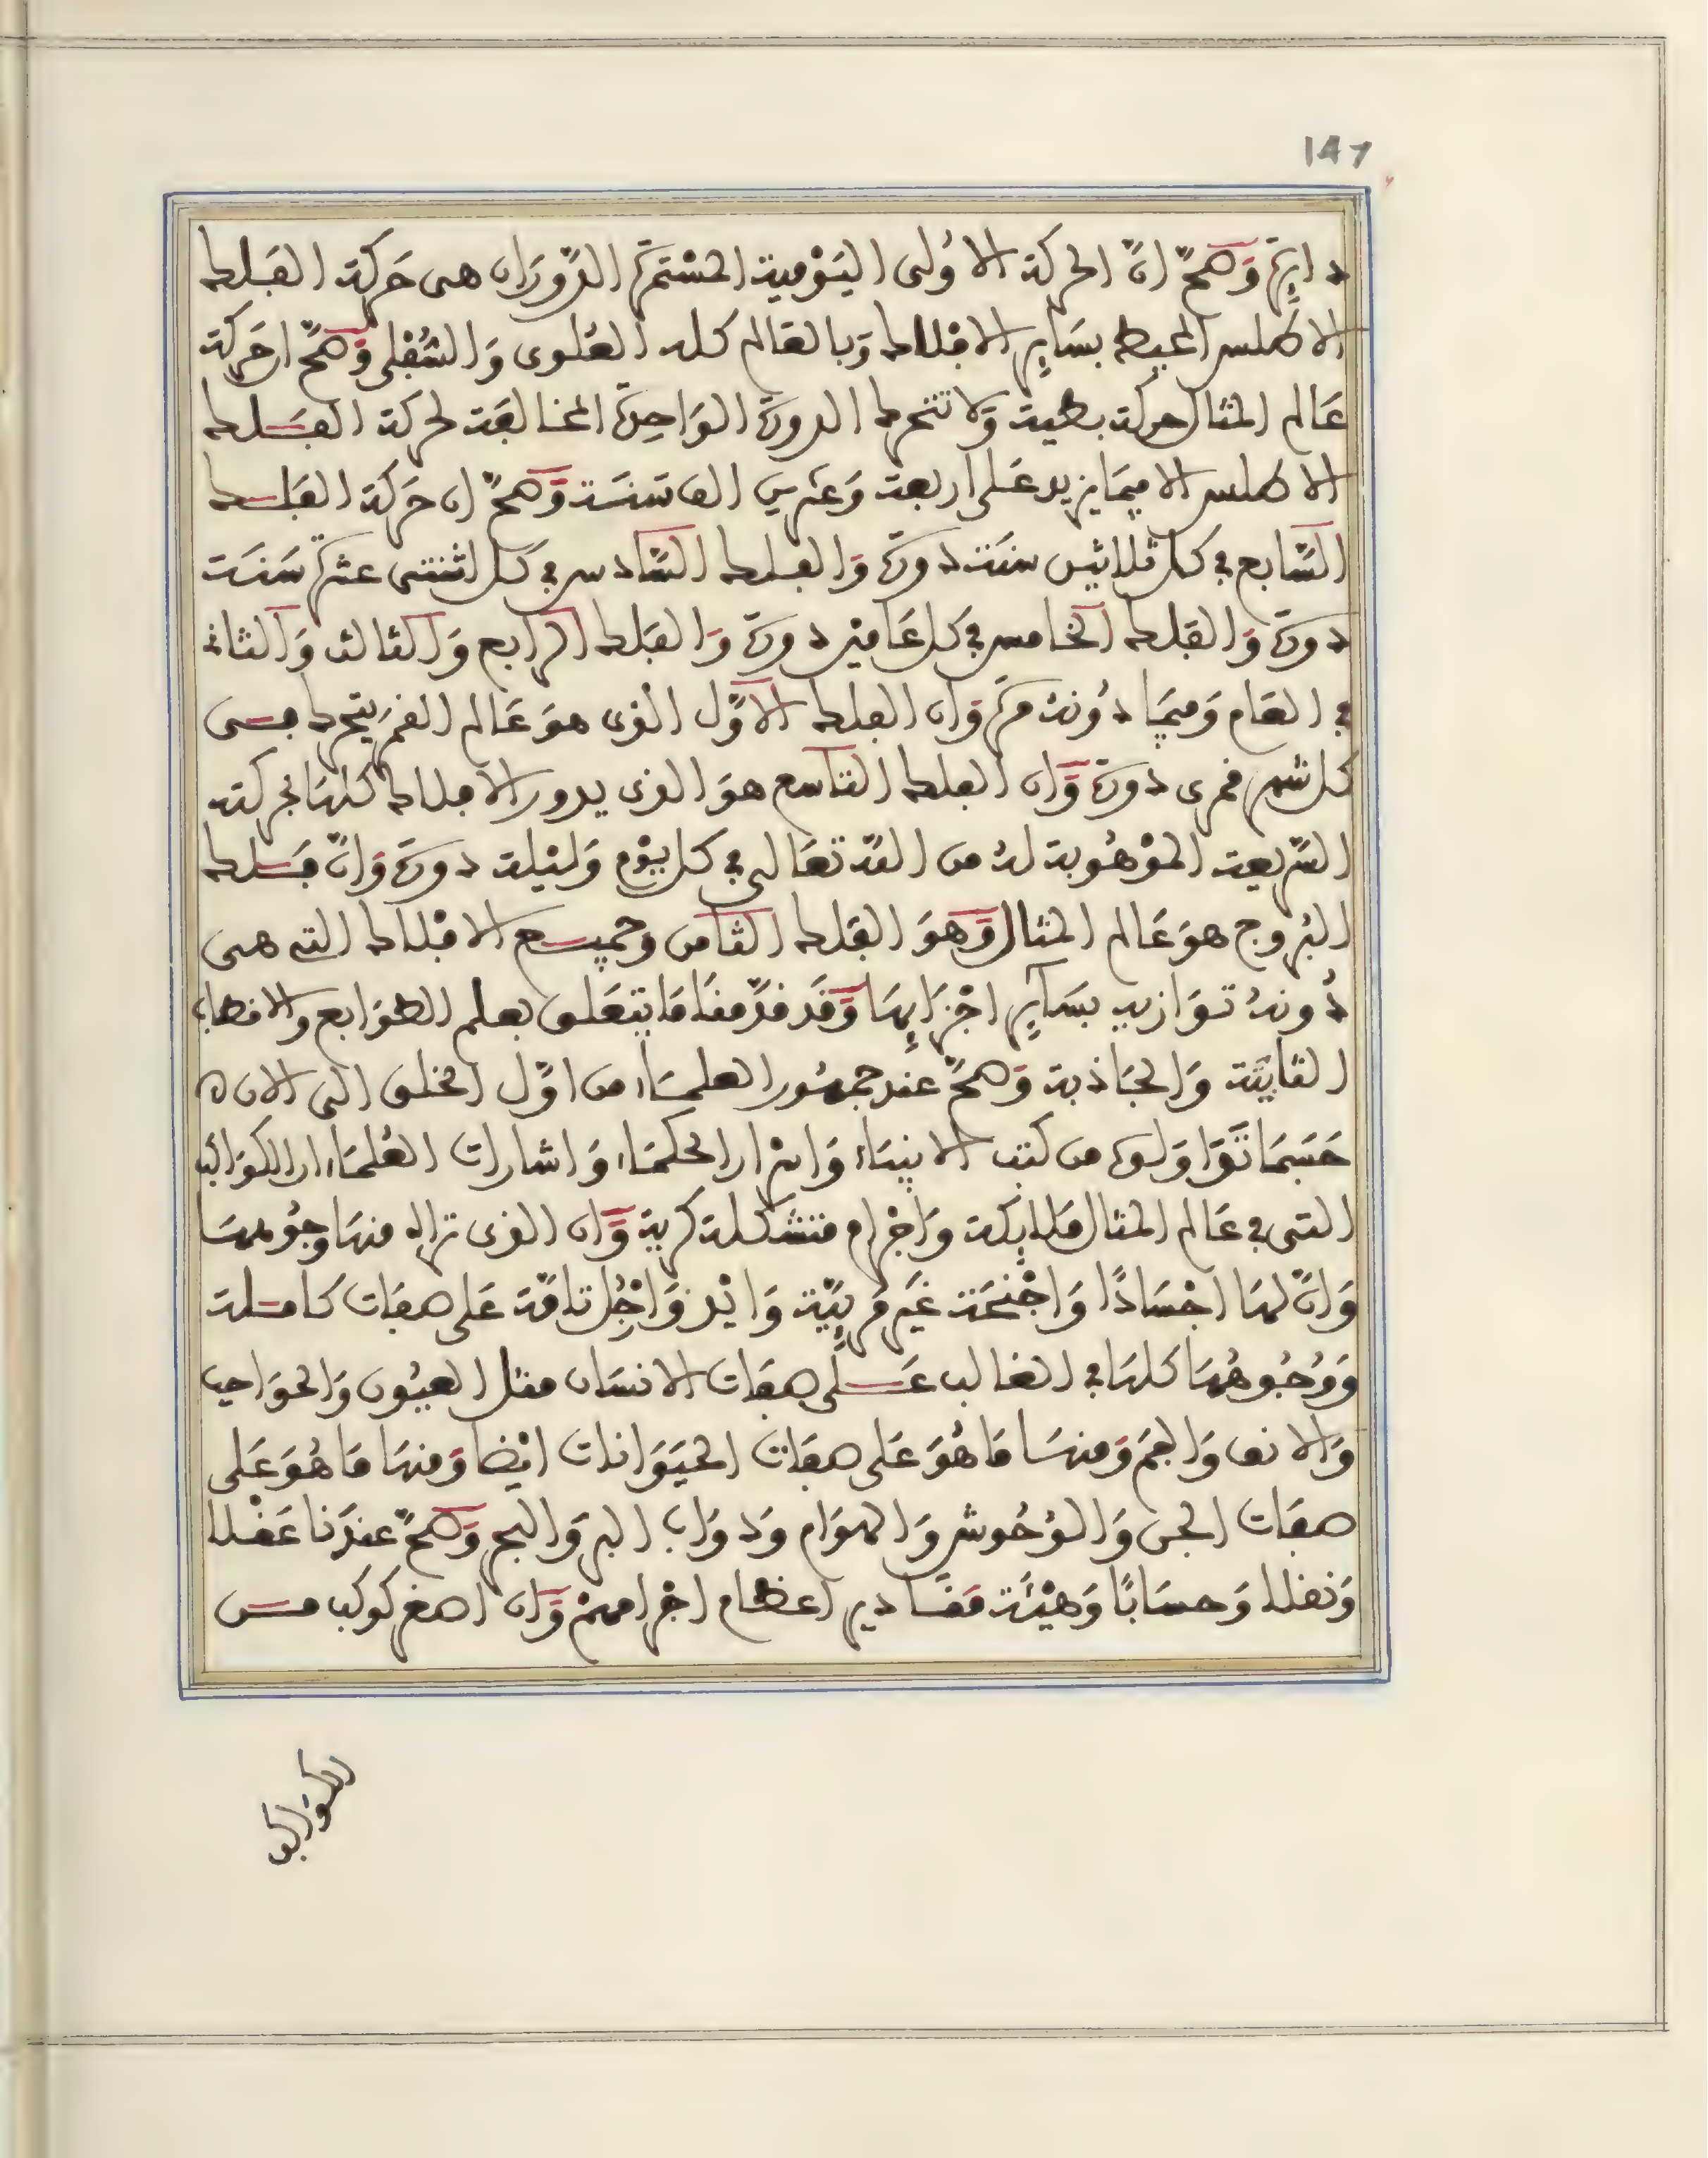 147
دايرة وَصحَّ انّ الحركة الاُولى اليَوْمية المسْتمرّة الدَّوَران هى حَركة الفَلك
الاطلس المحيط بسَاير الافْلاك وَبالعَالم كله العُلوى وَالسُّفْلى وَصحَّ ا حَركة
عَالم المثال حركة بطيئة وَلا تتحرك الدورة الوَاحِدة المخالفَة لحركة الفَلك
الاطلس الا فيمَا يزيد عَلى اربعة وَعشرين الف سَنَة وَصحَّ ان حَركة الفَلك
السَّابع في كل ثلاثين سنَة دورة وَالفلك السَّادس في كل اثنتى عشرة سَنَة
دورة وَالفَلك الخامس في كل عَامين دورة وَالفَلك الرابع وَالثالث وَالثانى
في العَام وَفيمَا دُونهُ مرّة وَان الفلك الاوَّل الذى هوَ عَالم القمر يتحرك في
كل شهر قمرى دورة وَّان الفلك التاسع هوَ الذى يدور الافلاك كلهَا بحركته
السّريعة الموْهُوبة لهُ من اللّه تعَالى في كل يَوْم وَليْلة دورة وَانَّ فَلك
البُروج هوَ عَالم المثال وَهوَ الفَلك الثامن وجميع الافْلاك التى هى
دُونهُ توَازيه بسَاير اجْزَايهَا وَقَد قدَّمنَا مَا يتعَلق بعلم الطوَابع والاقطاب
الثابتَة وَالجَاذبة وَصحَّ عند جمهُور العلمَاء من اوَّل الخلق الى الان ه
حَسَبمَا تَدَاوَلوه من كتب الانبيَاء وَاسْرار الحكمَاء وَاشارات العُلمَاء ان الكوَاكب
التى في عَالم المثال ملايكة وَاجْرام متشكلة كرية وَّان الذى تراه منهَا وجُوههَا
وَانّ لهَا اجْسَادًا وَاجْنحَة غيَر مَريِيّة وَايْد وَارْجُل تامّة عَلى صفَات كَاملة
وَوُجُوهُهَا كلهَا في الغالب عَلى صفَات الانسَان مثل العيُون وَالحوَاجب
وَالانف وَالفم وَمنهَا مَا هُوَ عَلى صفَات الحيَوَانات ايْضا وَمنهَا مَا هُوَ عَلى
صفَات الجن وَالوُحُوش وَالهوَام وَدوَاب البر وَالبحر وَصحَّ عندَنا عَقْلا
وَنقلا وَحسَابًا وَهيْئَة مقَادير اعظام اجْرامهنْ وَّان اصغر كوكب من
الكوَاكب